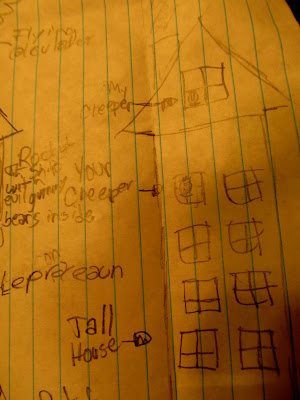 Flying
Calculator
My
Creeper
Rocket
Ship
with
evil gummy
bears inside
Your
Creeper
Lepreceaun
Tall
House